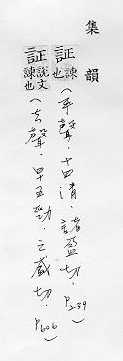 集韻
証 諫也（平聲．十四清．諸盈切．P239）
証 說文諫也（去聲．五勁．之盛切．P606）